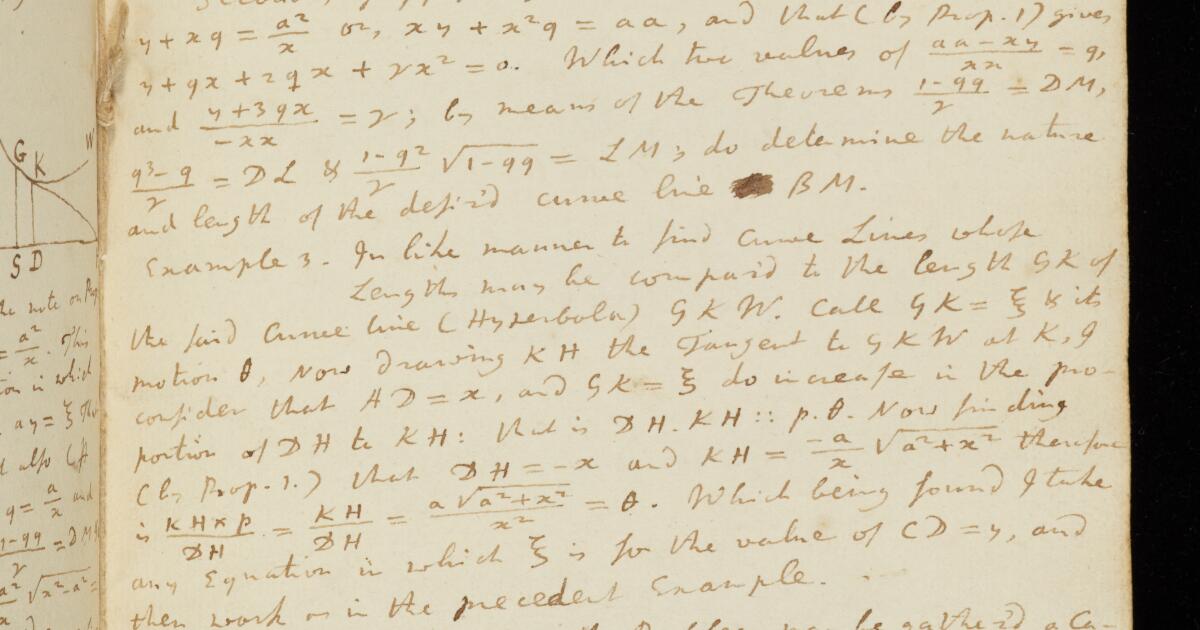 G K W
S D
y + xq = a²/x or, xy + x²q = aa, and that (by Prop. 1) gives
y + qx + 2qx + γx² = 0. Which two values of (aa − xy)/xx = q,
and (y + 3qx)/−xx = γ; by means of the Theorems (1−qq)/γ = DM,
(q³−q)/γ = DL & (1−q²)/γ √(1−qq) = LM; do determine the nature
and length of the desir'd curve line BM.
Example 3. In like manner to find Curve Lines whose
Lengths may be compar'd to the length GK of
the said Curve line (Hyperbola) GKW. Call GK = ξ & its
motion θ, Now drawing KH the Tangent to GKW at K, I
consider that AD = x, and GK = ξ do increase in the pro-
portion of DH to KH: that is DH . KH :: p . θ. Now finding
(by Prop. 1.) that DH = −x and KH = −a/x √(a²+x²) therefore
is KH×p/DH = KH/DH = a√(a²+x²)/x² = θ. Which being found I take
any Equation in which ξ is for the value of CD = y, and
then work as in the precedent Example.
the note on Prop
= a²/x. This
in which
ay = ξ
also
q = a/x and
1−qq/γ = DM
√(x²−a²) =